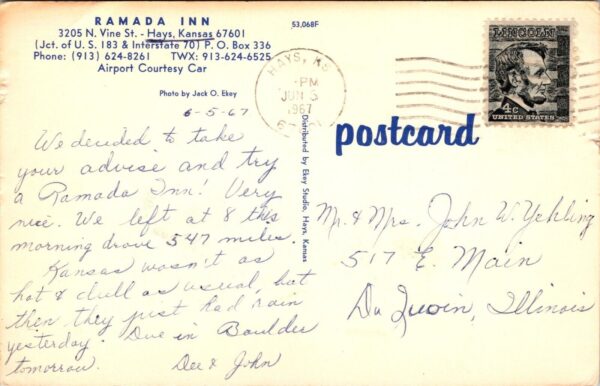 RAMADA INN
3205 N. Vine St. - Hays, Kansas 67601
(Jct. of U. S. 183 & Interstate 70) P. O. Box 336
Phone: (913) 624-8261 TWX: 913-624-6525
Airport Courtesy Car
Photo by Jack O. Ekey
53,068F
HAYS, KS
PM
JUN 5
1967
LINCOLN
4c
UNITED STATES
postcard
Distributed by Ekey Studio, Hays, Kansas
6-5-67
We decided to take
your advise and try
a Ramada Inn! Very
nice. We left at 8 this
morning drove 547 miles.
Kansas wasn't as
hot & dull as usual, but
then they just had rain
yesterday. Due in Boulder
tomorrow. Dee & John
Mr. & Mrs. John W. Yehling
517 E. Main
Du Quoin, Illinois